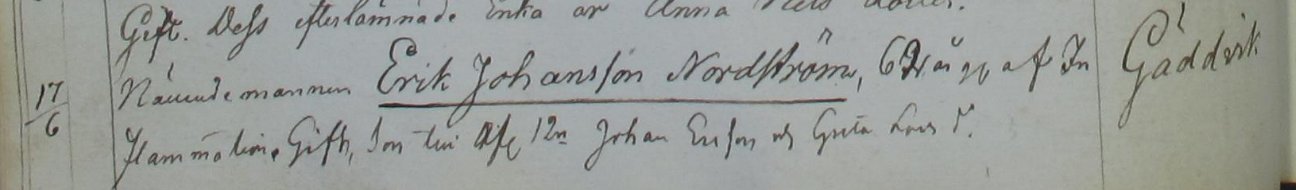 Gift. Dess efterlämnade Enka är Anna
17/6 Nämndemannen Erik Johansson Nordström, år gl af In Gäddvik
flammation. Gift, Son till 12n Johan Ersson och Greta Lars d.